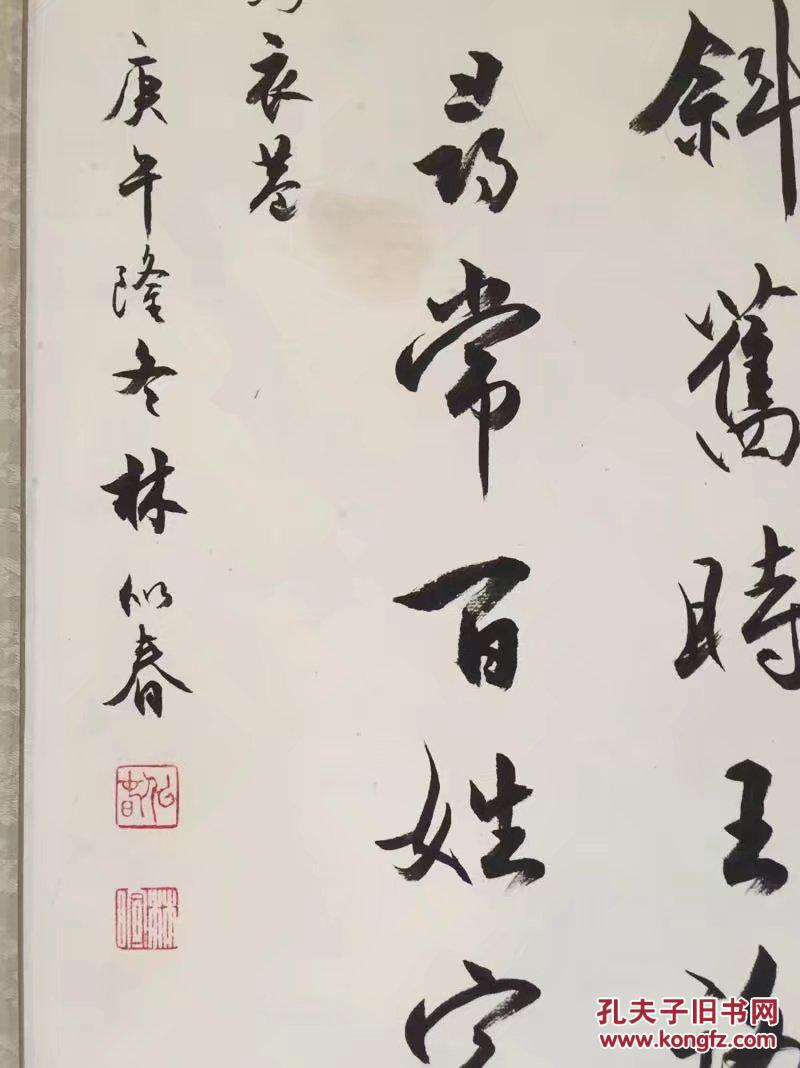 斜舊時王謝
尋常百姓家
衣巷
庚午隆冬林似春
似春
孔夫子旧书网
www.kongfz.com